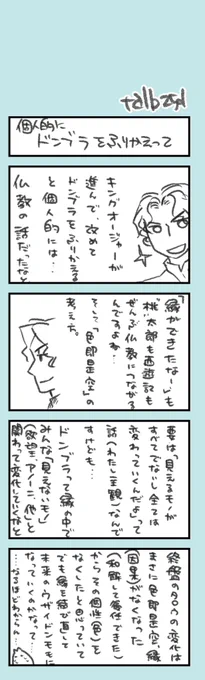 個人的に
ドンブラをふりかえって
キングオージャーが
進んで、改めて
ドンブラをふりかえる
と個人的には…
仏教の話だったなと
「縁ができたな」も
桃太郎も西遊記も
ぜんぶ仏教につながる
んですよね…
そこで「色即是空」の
考え方。
要は「見えるモノが
すべてでないし全ては
変わっていくんだよ」って
話(わたし主観)なんで
すけども…
ドンブラって縁の中で
みんな「見えないモノ」
(欲望、アノーニ、他)と
関わって変化していくなと
終盤のタロウの変化は
まさに色即是空、縁
(因果)がなくなった
(和解して番任できた)
からその個性(色)を
なくしたと思っていて
でも縁を結び直して
未来のウザイドンモモに
なっていくのかなって…